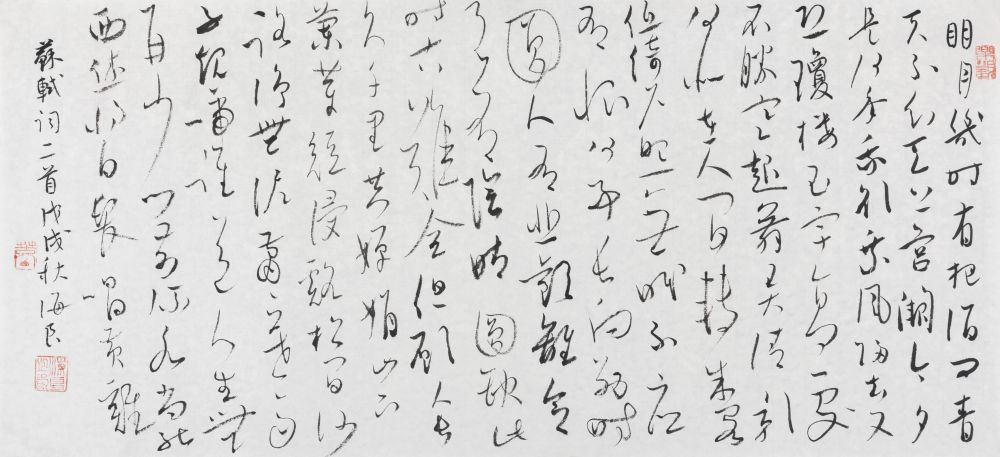 明月幾时有把酒问青
天不知天上宫阙今夕
是何年我欲乘风归去又
恐瓊楼玉宇高处
不勝寒起舞弄清影
何似在人间转朱阁
低绮户照无眠不应
有恨何事长向别时
圆人有悲歡離合
月有陰晴圆缺此
事古难全但願人长
久千里共嬋娟山下
蘭芽短浸谿松间沙
路净無泥萧萧暮雨
子規啼谁道人生無
再少门前流水尚能
西休将白髮唱黄雞
蘇軾词二首戊戌秋海